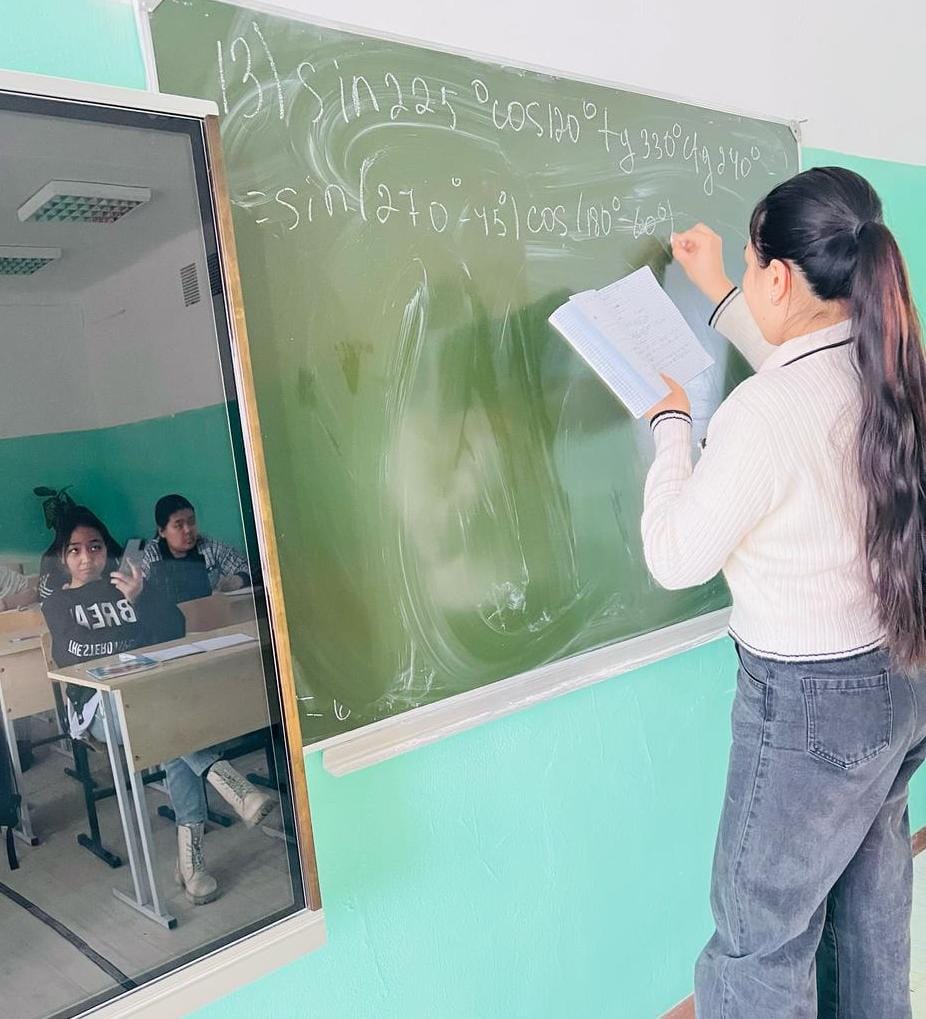 13) sin225° cos120° tg330° ctg240° =
= sin(270° - 45°) cos(180° - 60°)
BREA